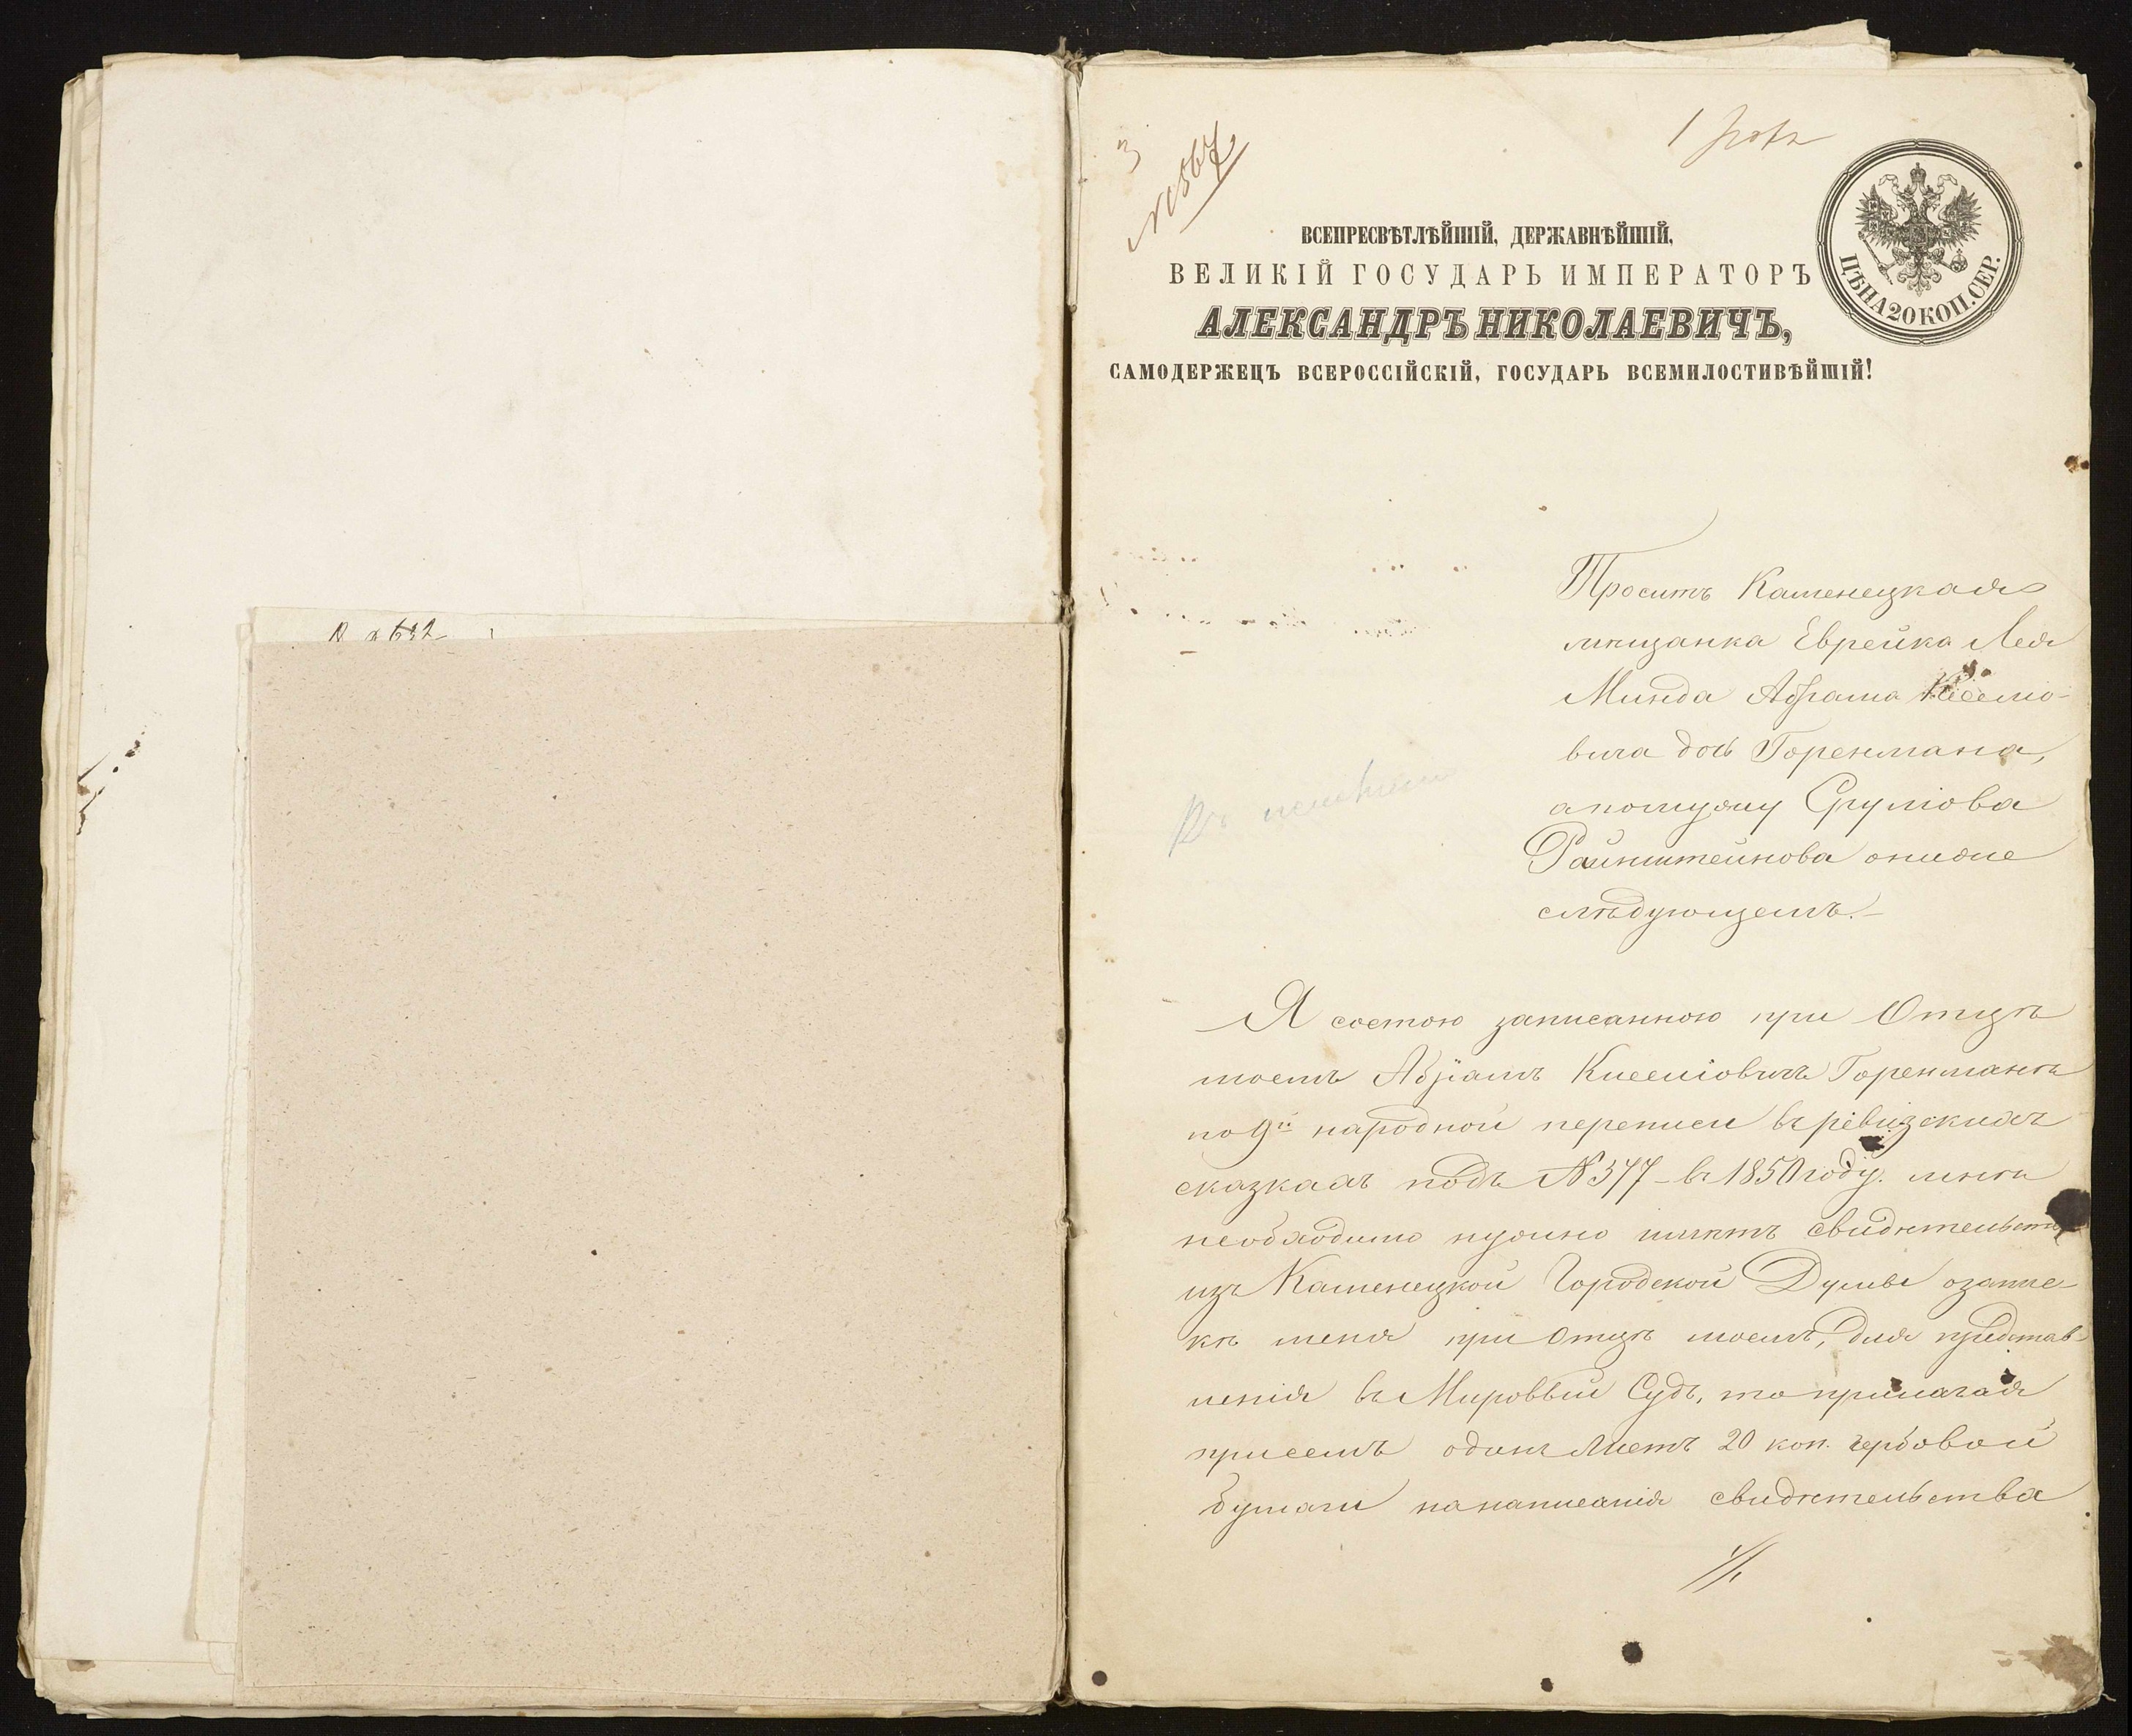 № 632
3
№ 567
1
ВСЕПРЕСВѢТЛѢЙШІЙ, ДЕРЖАВНѢЙШІЙ,
ВЕЛИКІЙ ГОСУДАРЬ ИМПЕРАТОРЪ
АЛЕКСАНДРЪ НИКОЛАЕВИЧЪ,
САМОДЕРЖЕЦЪ ВСЕРОССІЙСКІЙ, ГОСУДАРЬ ВСЕМИЛОСТИВѢЙШІЙ!
ЦѢНА 20 КОП. СЕР.
Проситъ Каменецкая
мѣщанка Еврейка Лея
Минда Абрама Кселіо-
вича дочь Горенмана,
а помужу Сруліова
Райнштейнова о ниже
слѣдующемъ.
Я состою записанною при Отцѣ
моемъ Абрамѣ Киселіовичѣ Горенманѣ
по 9й народной переписи въ ревизскихъ
сказкахъ подъ № 377 - въ 1850 году. мнѣ
необходимо нужно имѣть свидѣтельство
изъ Каменецкой Городской Думы о запис-
кѣ меня при Отцѣ моемъ, для представ-
ленія въ Мировый Судъ, то прилагая
присемъ одинъ Листъ 20 коп. гербовой
бумаги на написанія свидѣтельства